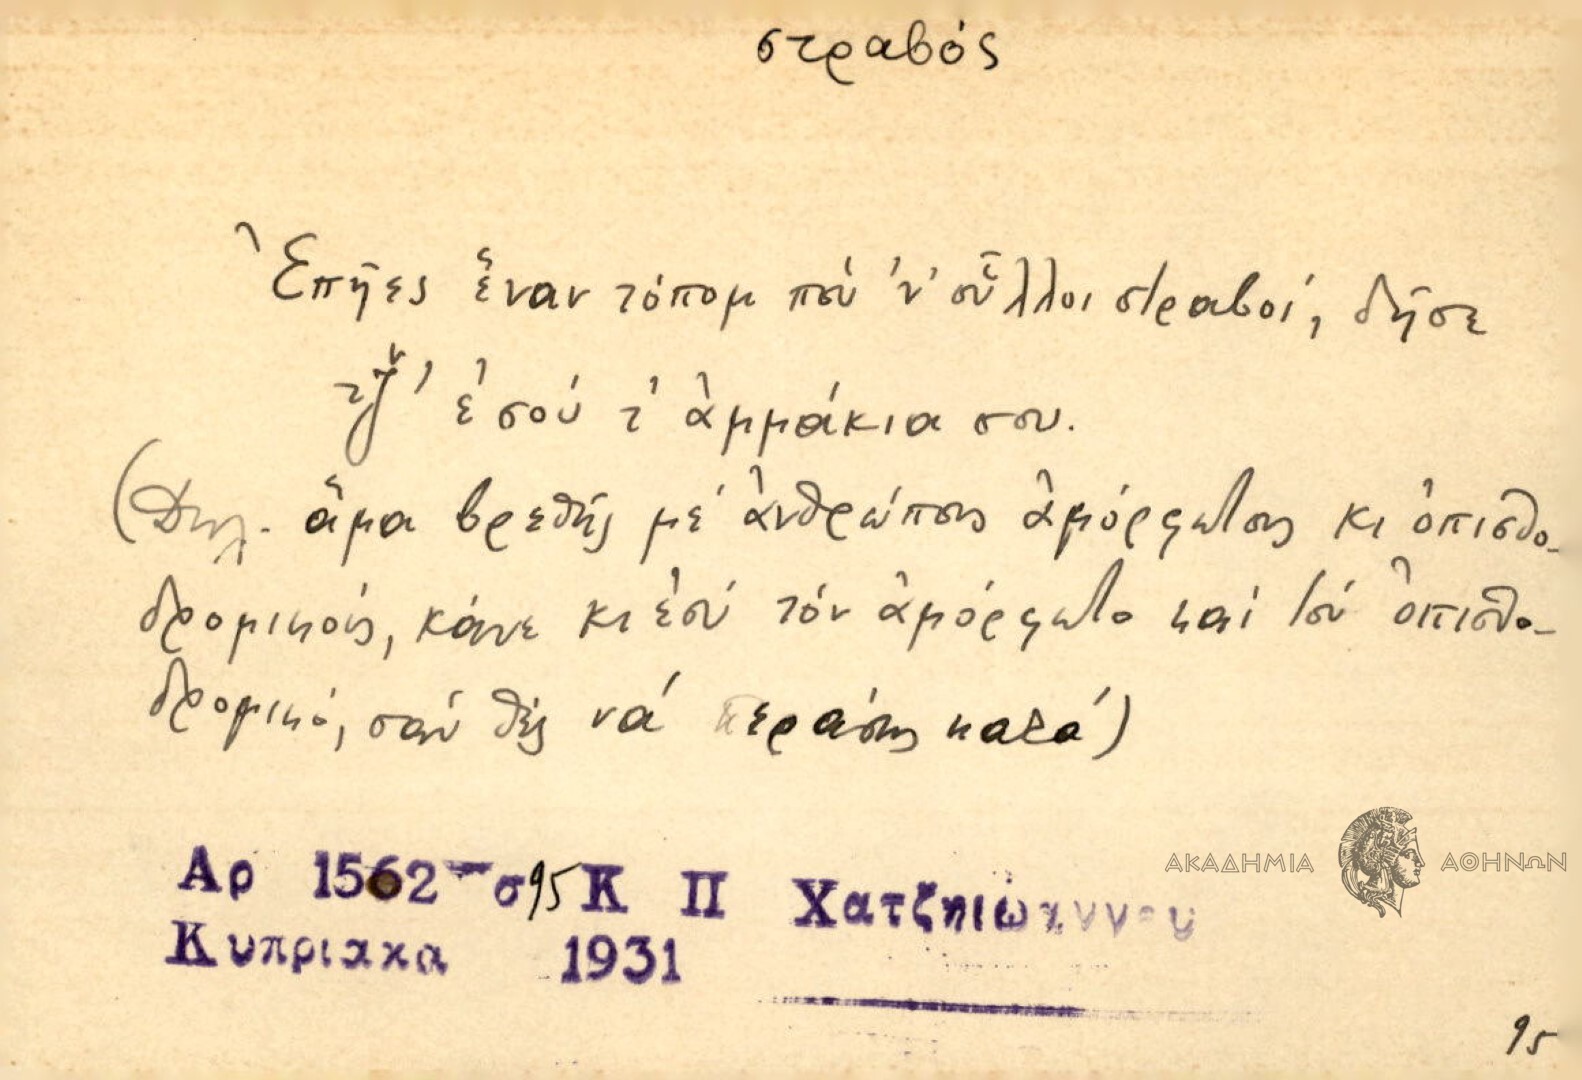 στραβός
Ἐπῆες ἕναν τόπομ πού 'ν' οὗλλοι στραβοί, δῆσε
τζ̌' ἐσού τ' ἀμμάκια σου.
(Δηλ. ἅμα βρεθῇς μέ ἀνθρώπους ἀμόρφωτους κι ὀπισθο-
δρομικούς, κάνε κι ἐσύ τόν ἀμόρφωτο καί τόν ὀπισθο-
δρομικό, σάν θές νά περάσῃς καλά)
Αρ 1562 - σ 95 Κ Π Χατζηιωάννου
Κυπριακα 1931
ΑΚΑΔΗΜΙΑ ΑΘΗΝΩΝ
95